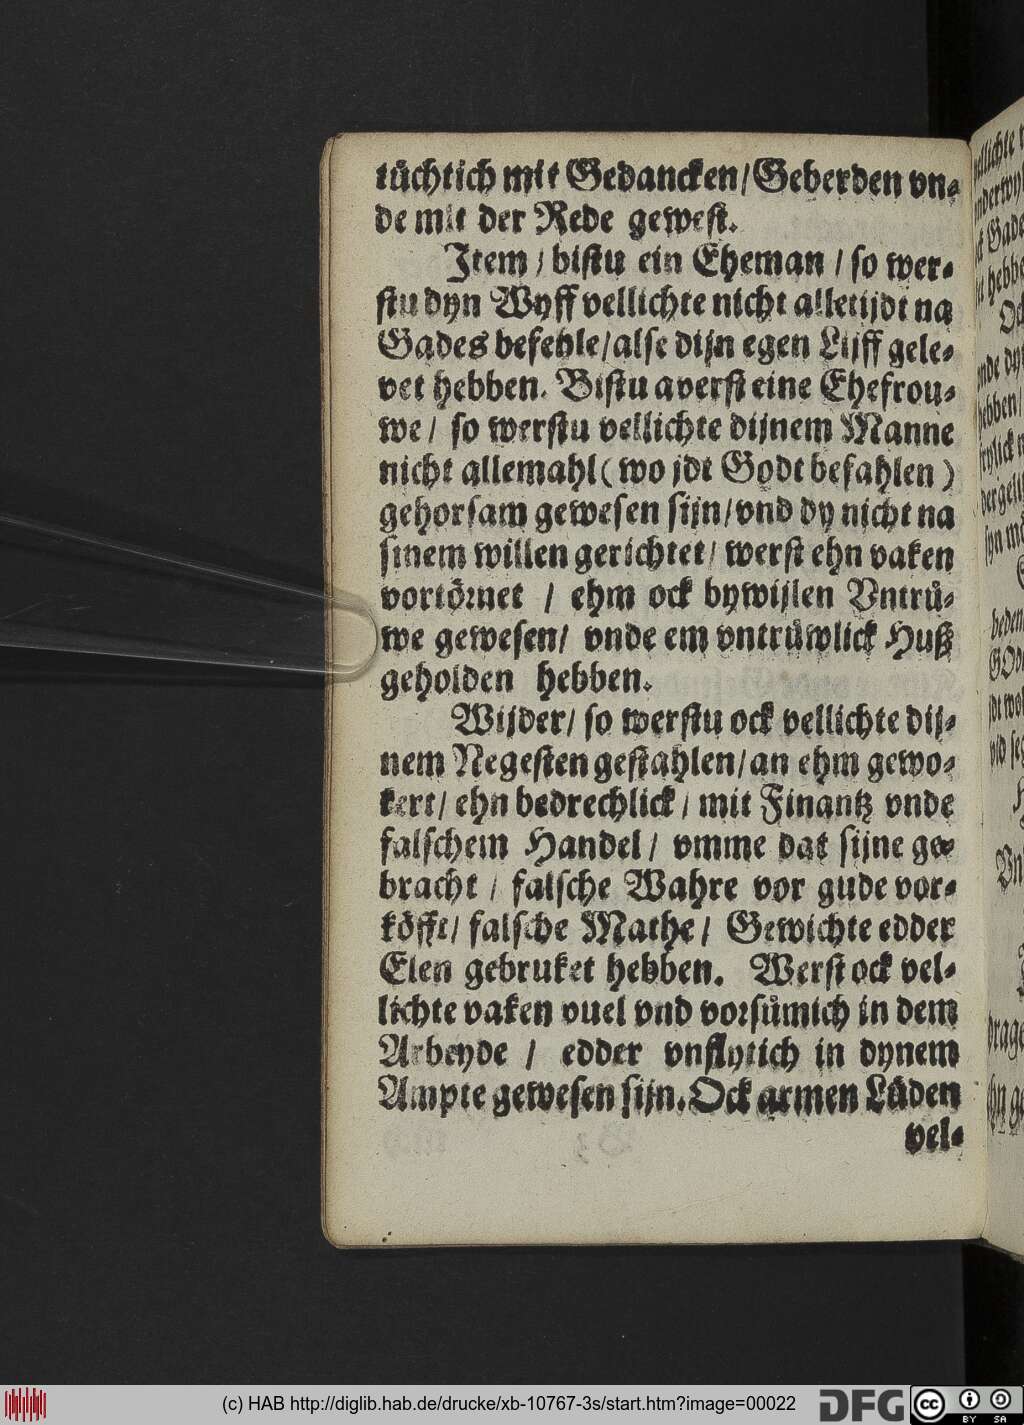 tüchtich mit Gedancken/Geberden vn-
de mit der Rede gewest.
Item / bistu ein Eheman / so wer-
stu dyn Wyff vellichte nicht alletijdt na
Gades befehle/alse dijn egen Lijff gele-
vet hebben. Bistu averst eine Ehefrou-
we / so werstu vellichte dijnem Manne
nicht allemahl (wo jdt Godt befahlen)
gehorsam gewesen sijn/vnd dy nicht na
sinem willen gerichtet/ werst ehn vaken
vortörnet / ehm ock bywijlen Vntrü-
we gewesen/ vnde em vntrüwlick Huß
geholden hebben.
Wijder/ so werstu ock vellichte dij-
nem Negesten gestahlen/an ehm gewo-
kert/ ehn bedrechlick/ mit Finantz vnde
falschem Handel/ vmme dat sijne ge-
bracht / falsche Wahre vor gude vor-
köfft/ falsche Mathe/ Gewichte edder
Elen gebruket hebben. Werst ock vel-
lichte vaken vuel vnd vorsümich in dem
Arbeyde / edder vnflytich in dynem
Ampte gewesen sijn. Ock armen Lüden
vel-
(c) HAB http://diglib.hab.de/drucke/xb-10767-3s/start.htm?image=00022
DFG
cc
BY SA